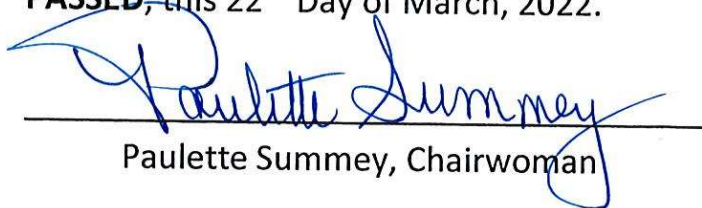 PASSED, this 22 Day of March, 2022.
Paulette Summey
Paulette Summey, Chairwoman